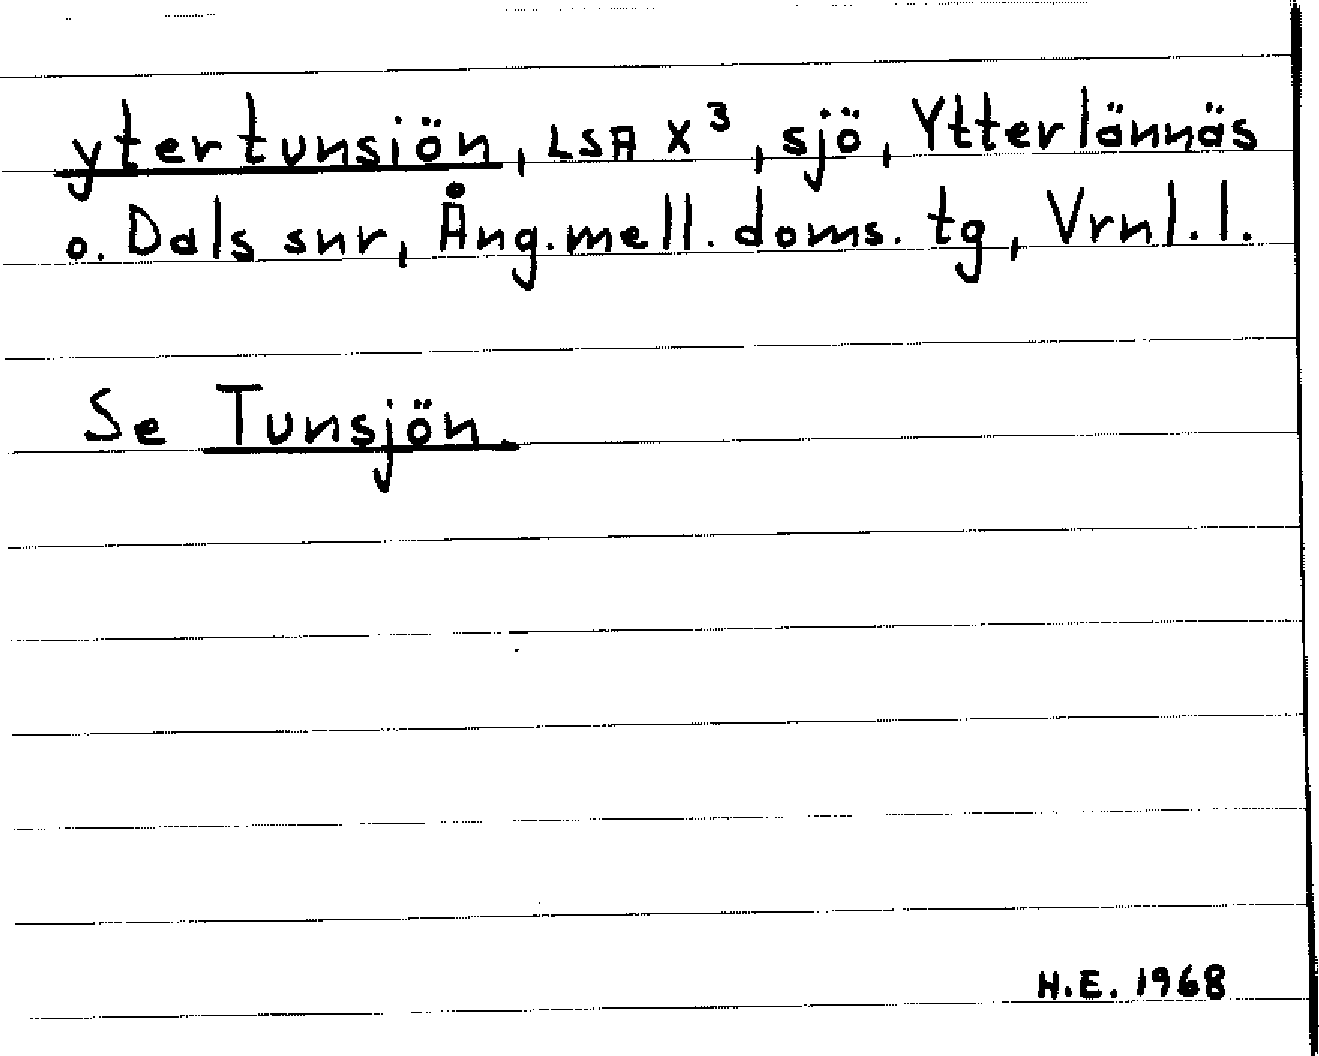 ytertunsiön, LSA X³, sjö, Ytterlännäs
o. Dals snr, Ång.mell. doms. tg, Vrnl.l.
Se Tunsjön.
H.E. 1968